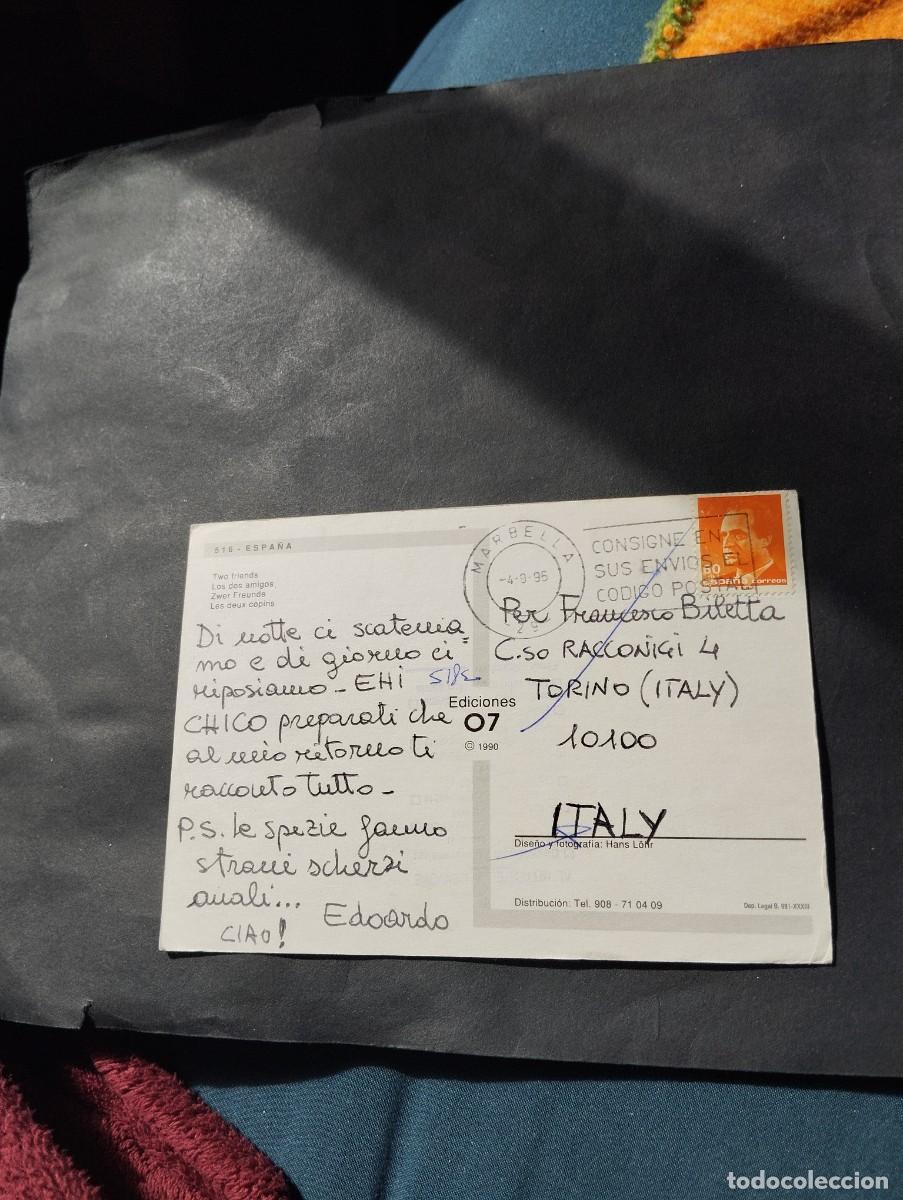 516 - ESPAÑA
Two friends
Los dos amigos
Zwer Freunde
Les deux copins
Di notte ci scatenia=
mo e di giorno ci
riposiamo - EHI
CHICO preparati che
al mio ritorno ti
racconto tutto -
P.S. le spezie fanno
strani scherzi
anali...
Edoardo
CIAO!
Ediciones
07
© 1990
MARBELLA
-4-9-95
29
CONSIGNE EN
SUS ENVIOS EL
CODIGO POSTAL
60
ESPAÑA correos
Per Francesco Biletta
C.so RACCONIGI 4
TORINO (ITALY)
10100
ITALY
Diseño y fotografía: Hans Löhr
Distribución: Tel. 908 - 71 04 09
Dep. Legal B. 991-XXXIII
todocoleccion